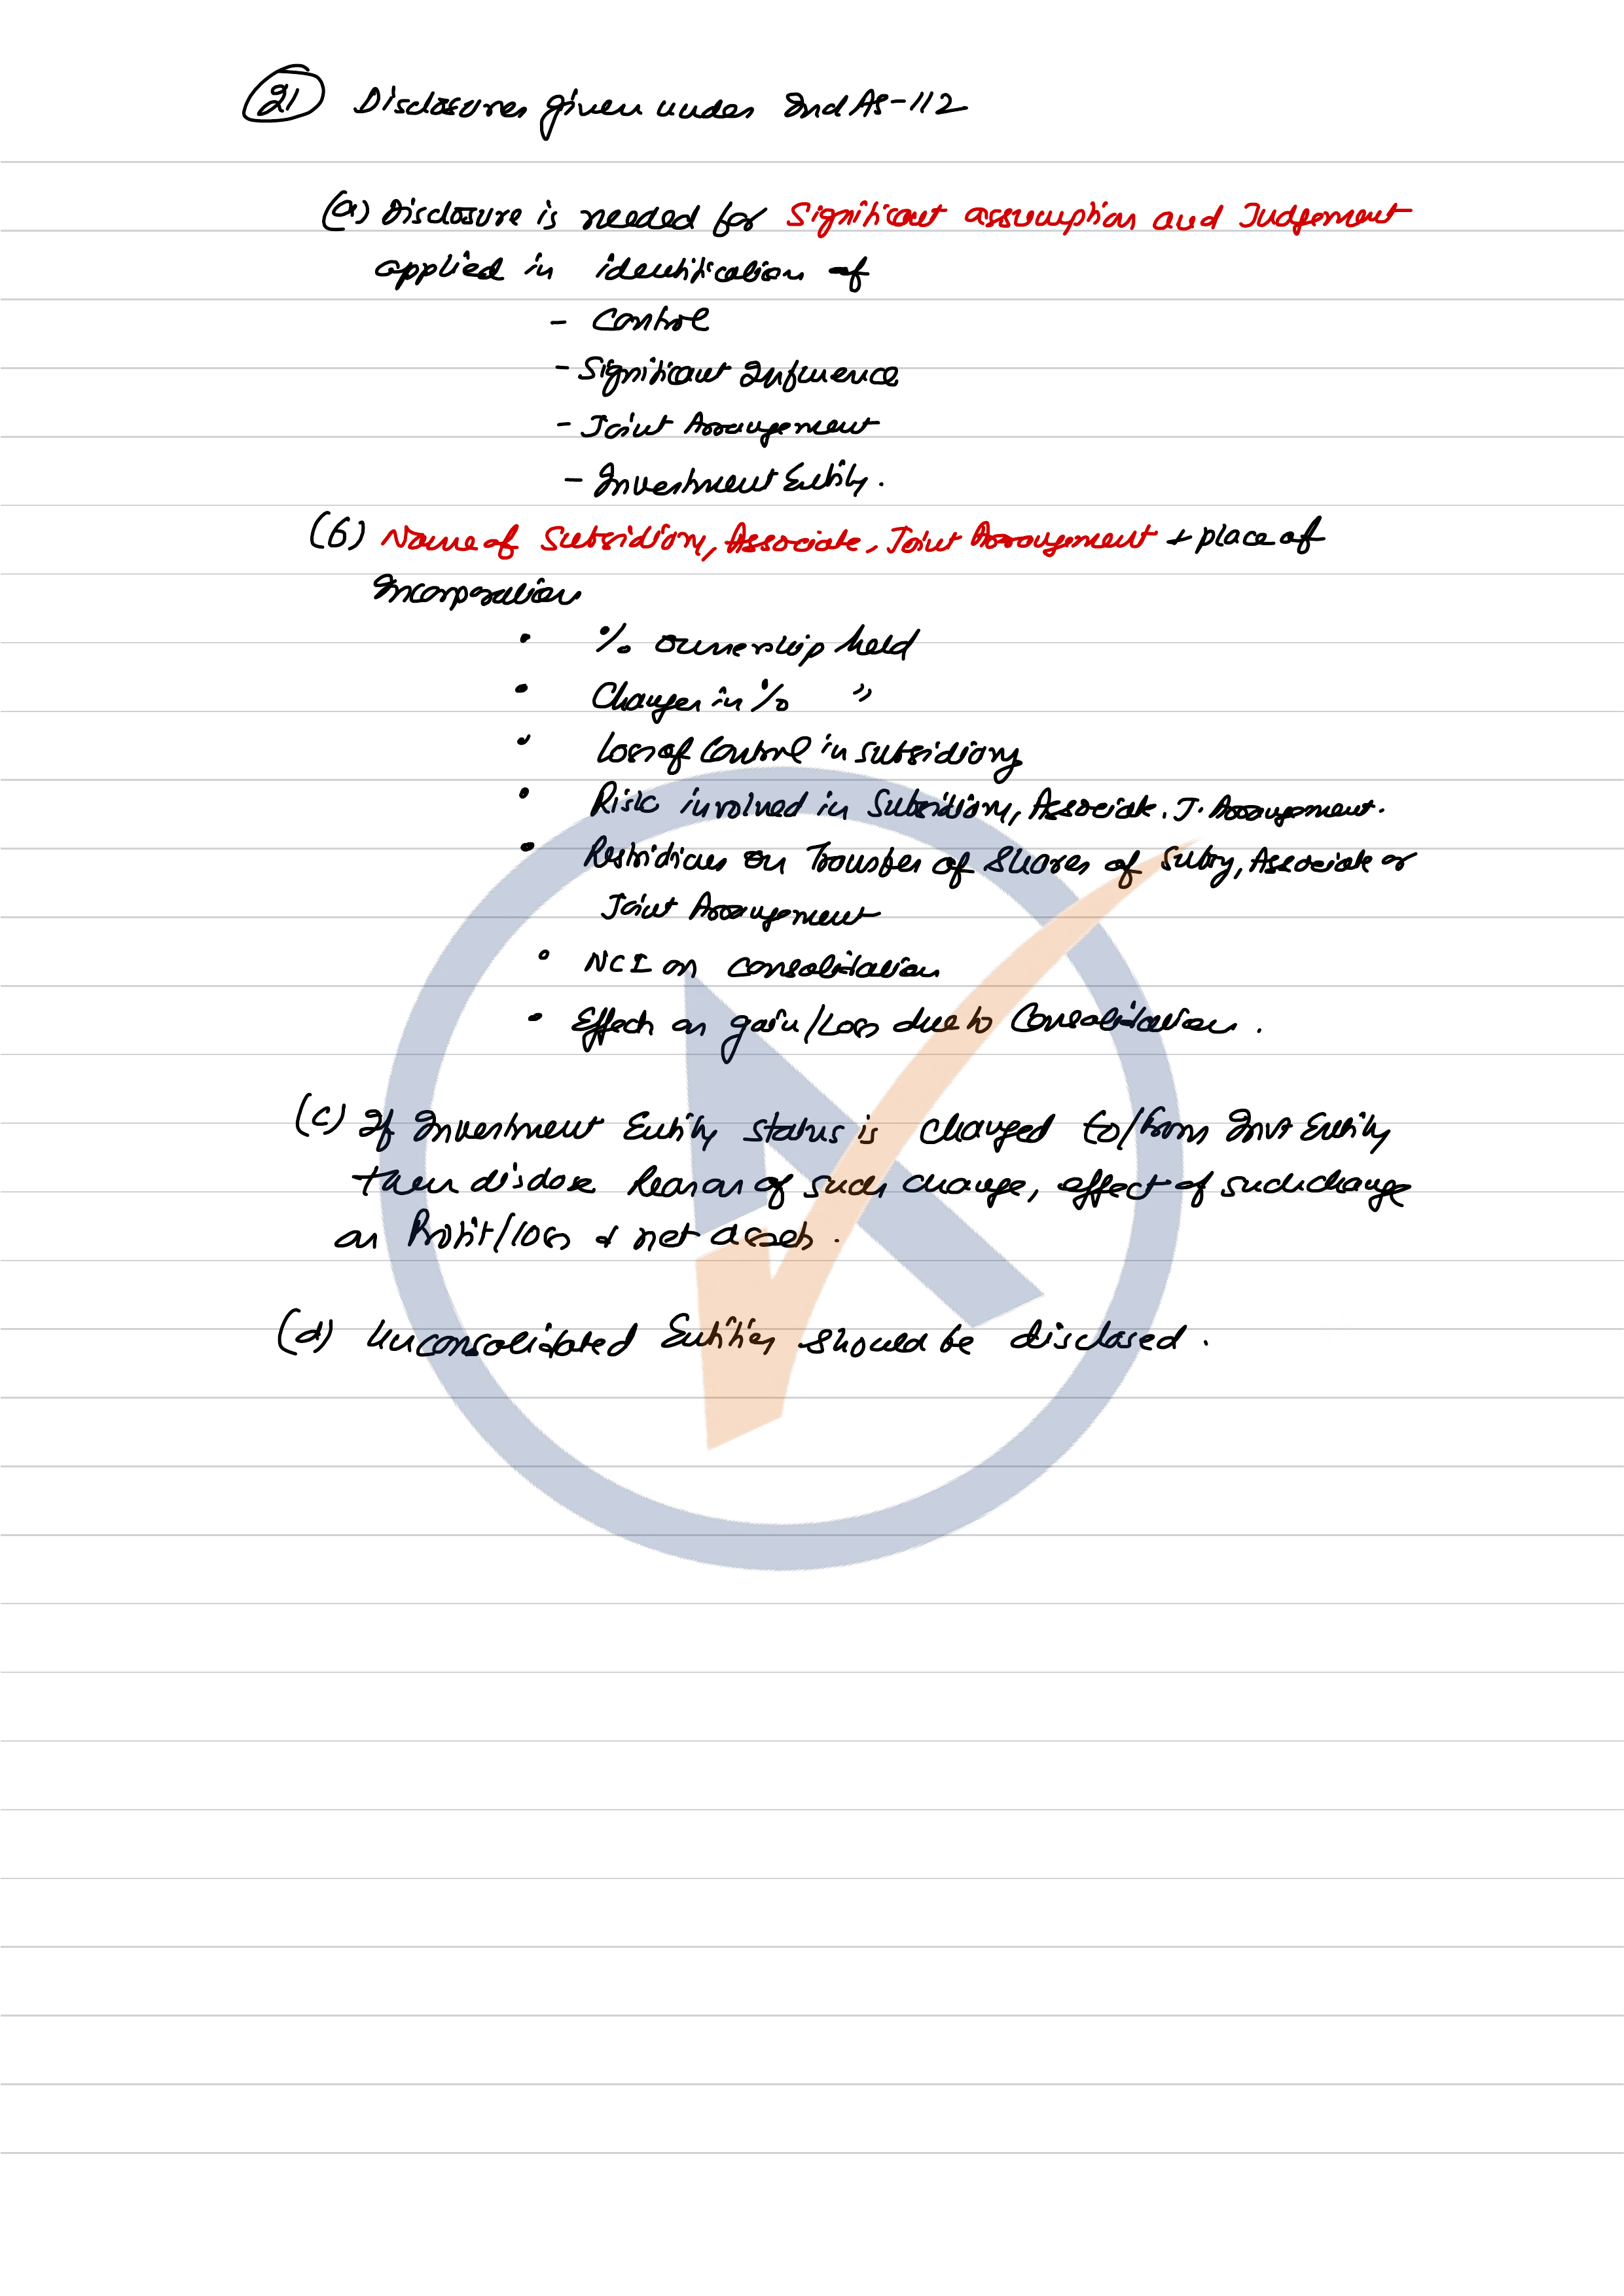 21 Disclosures given under Ind AS-112
(a) Disclosure is needed for Significant assumption and Judgement
applied in identification of
- Control
- Significant Influence
- Joint Arrangement
- Investment Entity.
(b) Name of Subsidiary, Associate, Joint Arrangement + place of
Incorporation
• % ownership held
• Changes in % "
• Loss of Control in subsidiary
• Risk involved in Subsidiary, Associate, J. Arrangement.
• Restrictions on Transfer of Shares of Subsy, Associate or
Joint Arrangement
• NCI on consolidation
• Effects on gain/Loss due to Consolidation.
(c) If Investment Entity status is changed to/from Invt Entity
then disclose Reason of such change, effect of such change
on Profit/loss & net assets.
(d) Unconsolidated Entities should be disclosed.